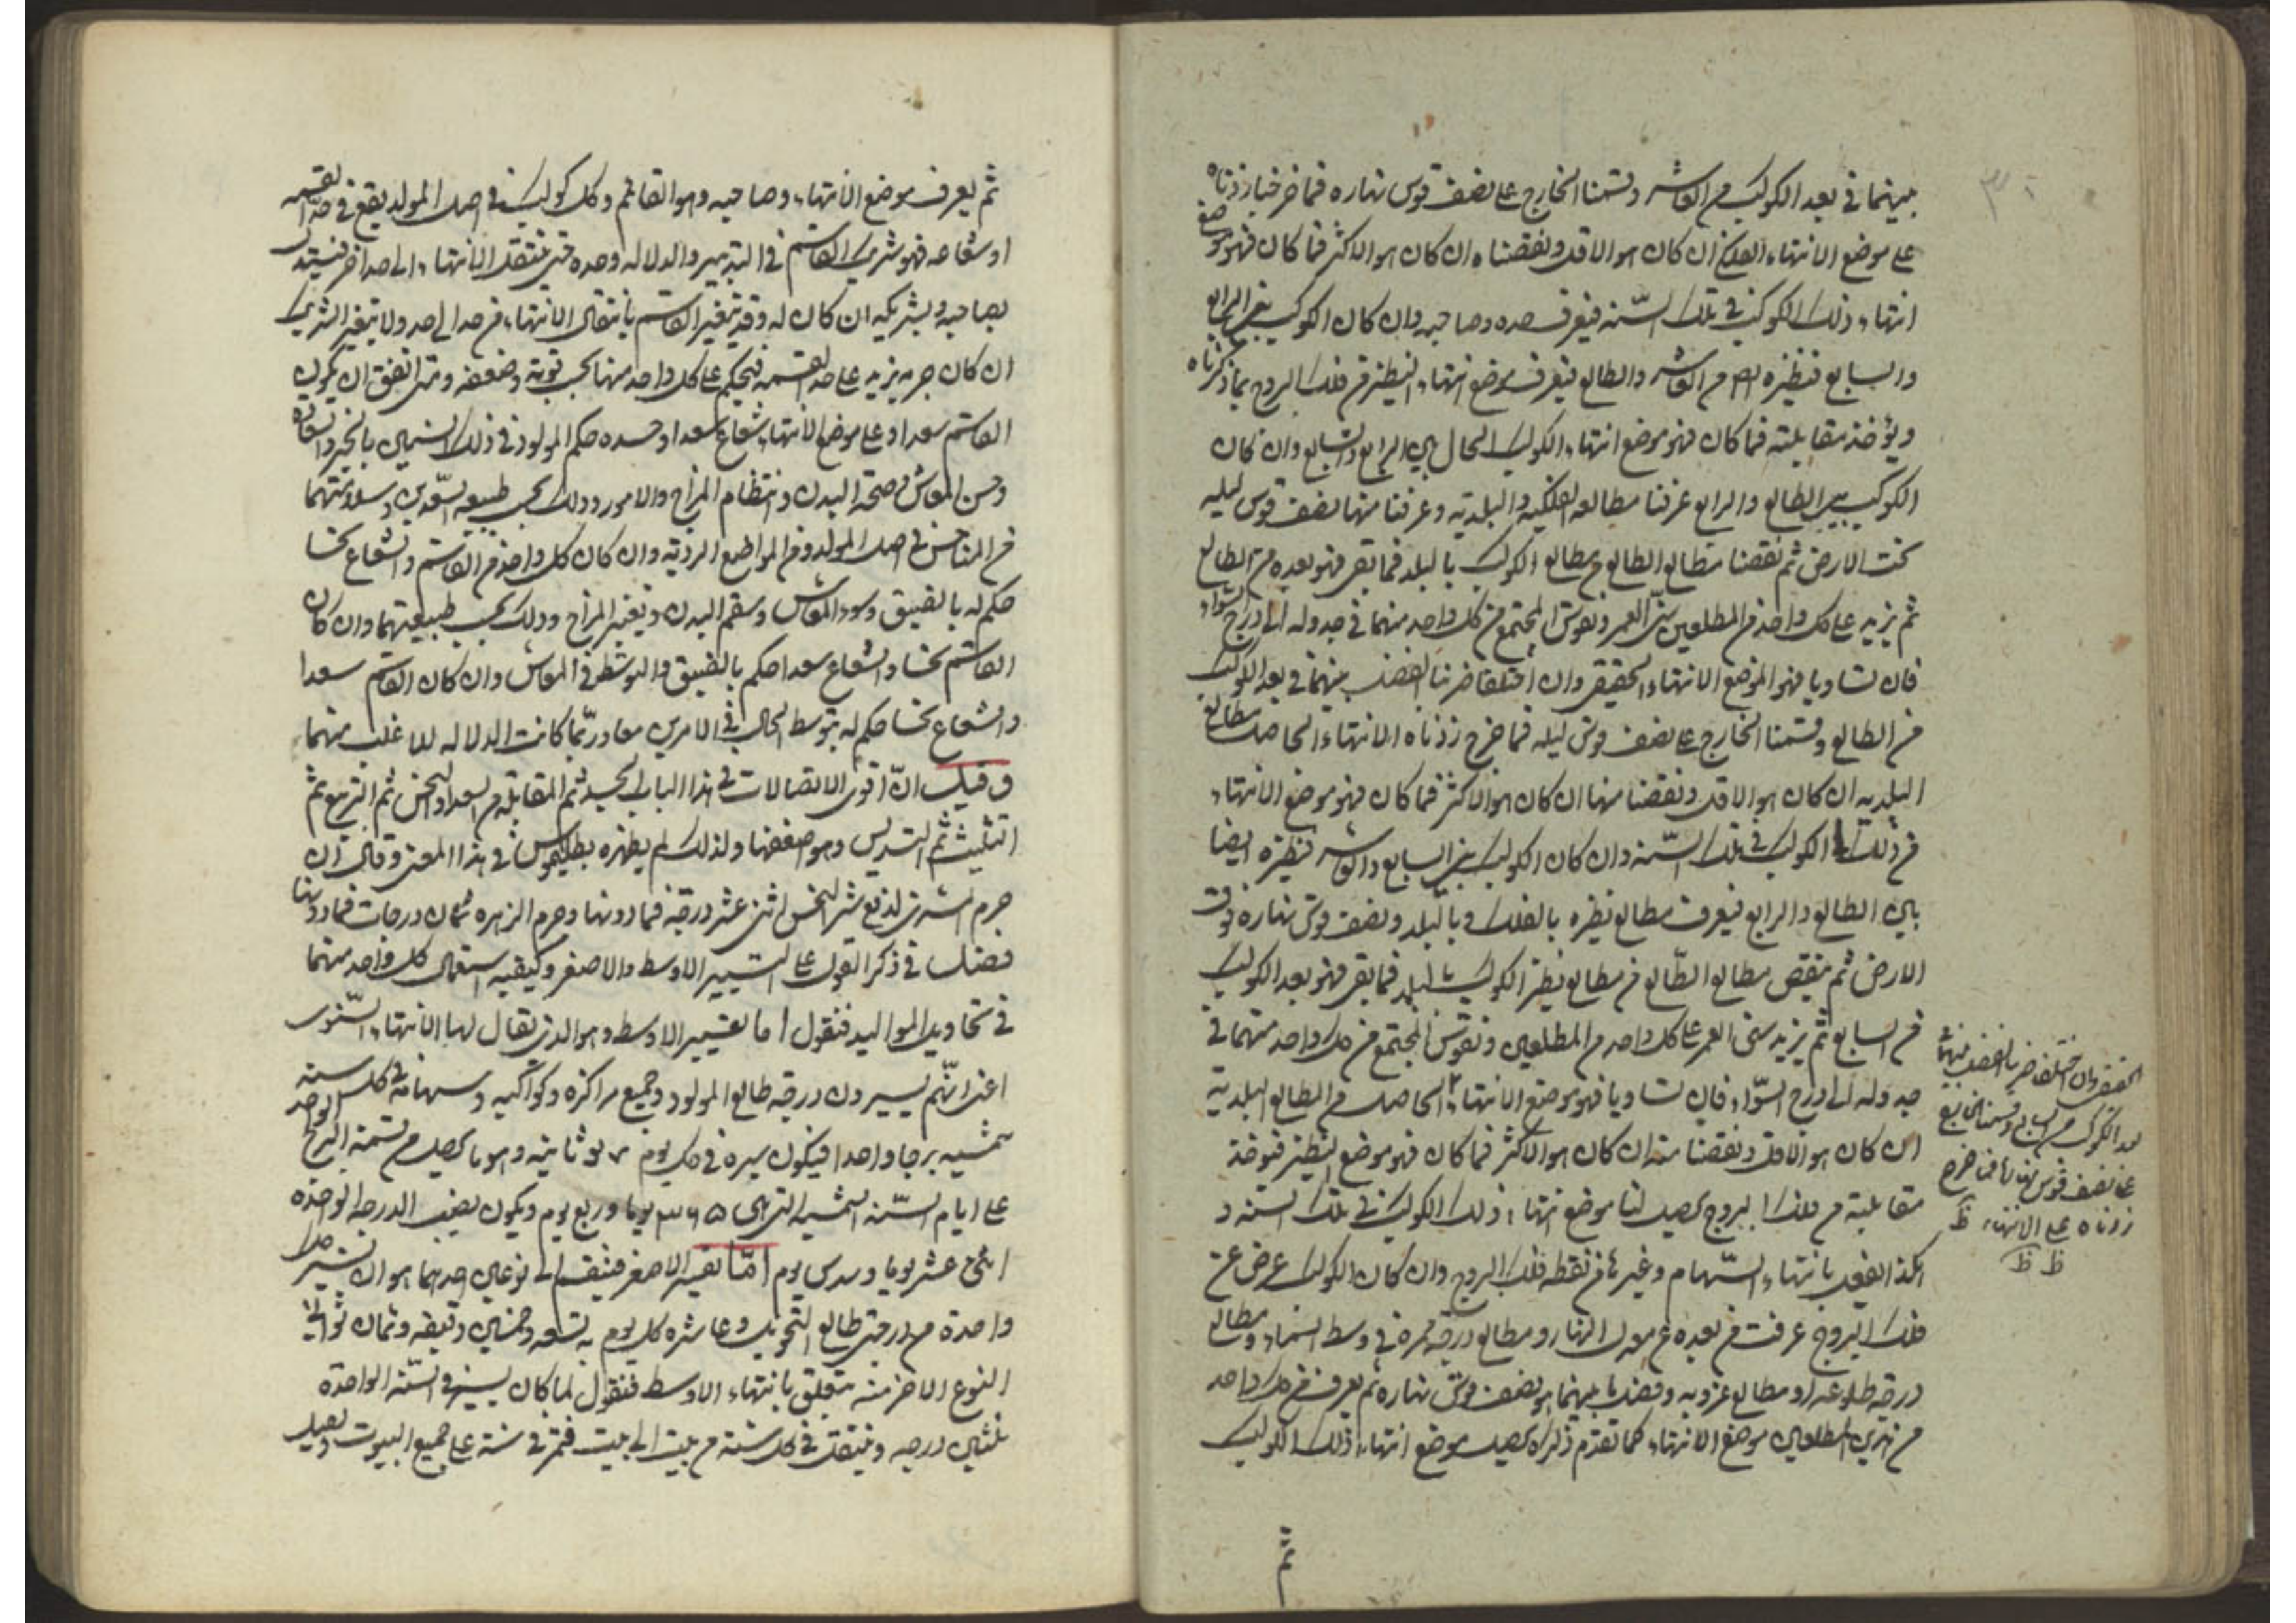 بينهما في بعد الكوكب من العاشر وقسمنا الخارج على نصف قوس نهاره فما خرج زدناه
على موضع الانتهاء الفلكي ان كان هو الاقل ونقصناه ان كان هو الاكثر فما كان فهو موضع
انتهاء ذلك الكوكب في تلك السنة فيعرف حده وصاحبه وان كان الكوكب بين الرابع
والسابع فنظيره بين العاشر والطالع فيعرف موضع انتهاء النظير من فلك البروج بما ذكرناه
ويؤخذ مقابلته فما كان فهو موضع انتهاء الكوكب الحال بين الرابع والسابع وان كان
الكوكب بين الطالع والرابع عرفنا مطالعه الفلكية والبلدية وعرفنا منها نصف قوس ليله
تحت الارض ثم نقصنا مطالع الطالع من مطالع الكوكب بالبلد فما بقى فهو بعده من الطالع
ثم نزيد على كل واحد من المطلعين سني العمر ونقوس المجتمع من كل واحد منهما في جدوله الى درج السواء
فان تساويا فهو الموضع الانتهاء الحقيقي وان اختلفا ضربنا الفضل بينهما في بعد الكوكب
من الطالع وقسمنا الخارج على نصف قوس ليله فما خرج زدناه الانتهاء الحاصل مطالع
البلدية ان كان هو الاقل ونقصنا منها ان كان هو الاكثر فما كان فهو موضع الانتهاء
من ذلك الكوكب في تلك السنة وان كان الكوكب بين السابع والعاشر فنظيره ايضا
بين الطالع والرابع فيعرف مطالع نظيره بالفلك وبالبلد ونصف قوس نهاره فوق
الارض ثم ينقص مطالع الطالع من مطالع نظير الكوكب بالبلد فما بقى فهو بعد الكوكب
من السابع ثم نزيد سنى العمر على كل واحد من المطلعين ونقوس المجتمع من كل واحد منهما في
جدوله الى درج السواء فان تساويا فهو موضع الانتهاء الحاصل من المطالع البلدية
ان كان هو الاقل ونقصنا منه ان كان هو الاكثر فما كان فهو موضع النظير فنوخذ
مقابلته من فلك البروج يحصل لنا موضع انتهاء ذلك الكوكب في تلك السنة و
هكذا الفعل بانتهاء السهام وغيرها من نقطه فلك البروج وان كان للكوكب عرض عن
فلك البروج عرفت من بعده عن معدل النهار ومطالع درجة ممره في وسط السماء ومطالع
درجة طلوعه او مطالع غروبه وفضل ما بينهما هو نصف قوس نهاره ثم يعرف من كل واحد
من هذين المطلعين موضع الانتهاء كما تقدم ذكره يحصل موضع انتهاء ذلك الكوكب
الحقيقي وان اختلفا ضربنا الفضل بينهما في
بعد الكوكب من السابع وقسمنا
على نصف قوس نهاره فما خرج
زدناه على الانتهاء ظ
ظ ظ
ثم
ثم يعرف موضع الانتهاء وصاحبه وهو القاسم وكل كوكب في اصل المولد يقع في حد القسمه
او شعاعه فهو شريك القاسم في التدبير والدلاله وحده حتى ينتقل الانتهاء الى حد اخر فيستدل
بصاحبه وبشريكه ان كان له وقد يتغير القاسم بانتقال الانتهاء من حد الى حد ولا يتغير الشريك
ان كان جرمه يزيد على حد القسمه فيحكم على كل واحد منها بحسب قوته وضعفه ومتى اتفق ان يكون
القاسم سعدا وعلى موضع الانتهاء شعاع سعد او جسده حكم للمولود في ذلك السنين بالخير والسعادة
وحسن المعاش وصحة البدن وانتظام المزاج والامور وذلك بحسب طبيعه السعدين وسلامتهما
من المناحس في اصل المولد ومن المواضع الردية وان كان كل واحد من القاسم والشعاع نحسا
حكم له بالضيق وسوء المعاش وسقم البدن وتغير المزاج وذلك بحسب طبيعتهما وان كان
القاسم نحسا والشعاع سعدا حكم بالضيق والتوسط في المعاش وان كان القاسم سعدا
والشعاع نحسا حكم له بتوسط الحال في الامرين معا وربما كانت الدلاله للاغلب منهما
وقيل ان اقوى الاتصالات في هذا الباب الجسد ثم المقابلة من السعد والنحس ثم التربيع ثم
التثليث ثم التسديس وهو اضعفها ولذلك لم يظهره بطليموس في هذا المعنى وقال ان
جرم المشترى لدفع شر النحس اثنى عشر درجة فما دونها وجرم الزهره ثمان درجات فما دونها
فصل في ذكر القول على التسيير الاوسط والاصغر وكيفيه استعمال كل واحد منهما
في تحاويل المواليد فنقول اما تسيير الاوسط وهو الذى يقال لها الانتهاء السنوى
اعنى انهم يسيرون درجة طالع المولود وجميع مراكزه وكواكبه وسهامه في كل سنه
شمسيه برجا واحدا فيكون سيره في كل يوم ثانيه وهو ما يحصل من قسمة البرج الواحد
على ايام السنه الشمسيه التى هى ٣٦٥ يوما وربع يوم ويكون نصيب الدرجه الواحده
اثنى عشر يوما وسدس يوم اما تسيير الاصغر فينقسم الى نوعين احدهما هو ان تسير
واحدة من درجتى طالع التحويل وعاشره كل يوم بتسعه وخمسين دقيقه وثمان ثوانى
النوع الاخر منه متعلق بانتهاء الاوسط فنقول لما كان يسير في السنه الواحدة
ثلثين درجه وينتقل في كل سنة من بيت الى بيت فتمر في سنة على جميع البيوت